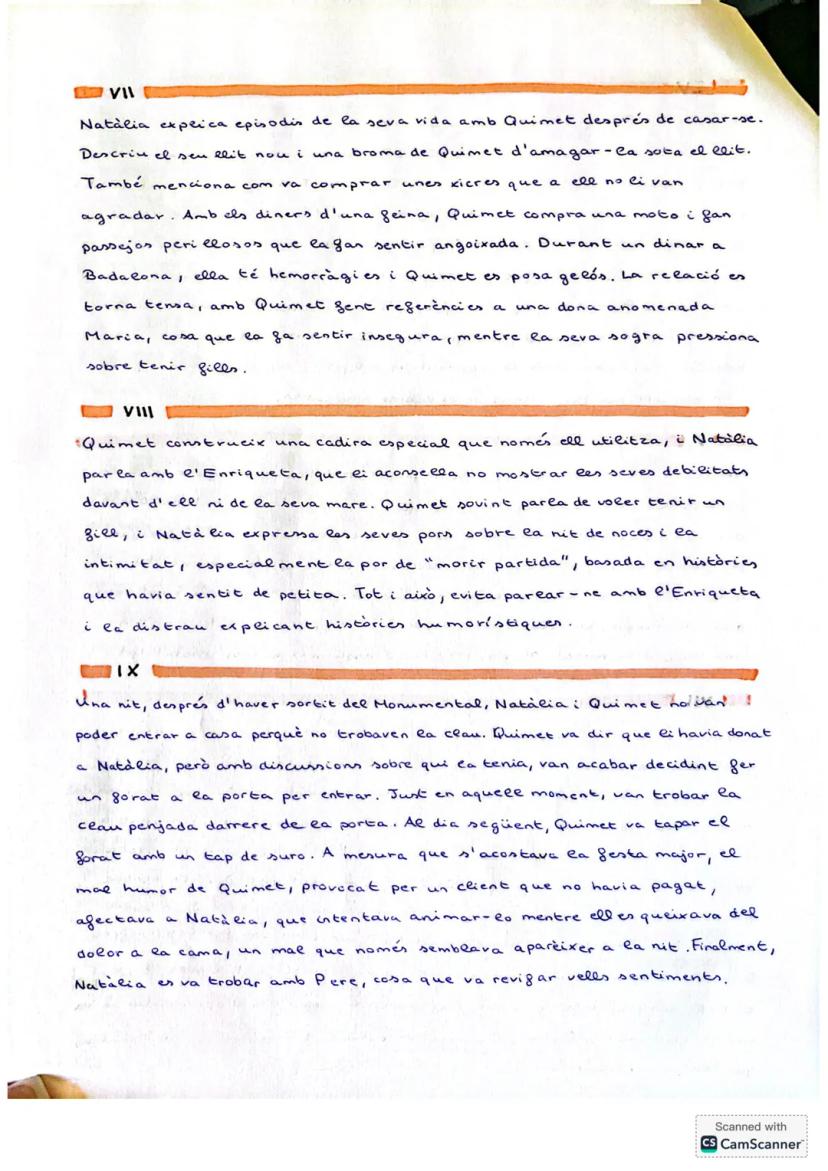 VII
Natàlia explica episodis de la seva vida amb Quimet després de casar-se.
Descriu el seu llit nou i una broma de Quimet d'amagar-la sota el llit.
També menciona com va comprar unes xicres que a ell no li van
agradar. Amb els diners d'una feina, Quimet compra una moto i fan
passejos perillosos que la fan sentir angoixada. Durant un dinar a
Badalona, ella té hemorràgies i Quimet es posa gelós. La relació es
torna tensa, amb Quimet fent referències a una dona anomenada
Maria, cosa que la fa sentir insegura, mentre la seva sogra pressiona
sobre tenir fills.
VIII
Quimet construeix una cadira especial que només ell utilitza, i Natàlia
parla amb l'Enriqueta, que li aconsella no mostrar les seves debilitats
davant d'ell ni de la seva mare. Quimet sovint parla de voler tenir un
fill, i Natàlia expressa les seves pors sobre la nit de noces i la
intimitat, especialment la por de "morir partida", basada en històries
que havia sentit de petita. Tot i això, evita parlar-ne amb l'Enriqueta
i la distrau explicant històries humorístiques.
IX
Una nit, després d'haver sortit del Monumental, Natàlia i Quimet no van
poder entrar a casa perquè no trobaven la clau. Quimet va dir que li havia donat
a Natàlia, però amb discussions sobre qui la tenia, van acabar decidint fer
un forat a la porta per entrar. Just en aquell moment, van trobar la
clau penjada darrere de la porta. Al dia següent, Quimet va tapar el
forat amb un tap de suro. A mesura que s'acostava la festa major, el
mal humor de Quimet, provocat per un client que no havia pagat,
afectava a Natàlia, que intentava animar-lo mentre ell es queixava del
dolor a la cama, un mal que només semblava aparèixer a la nit. Finalment,
Natàlia es va trobar amb Pere, cosa que va revifar vells sentiments.
Scanned with
CS CamScanner